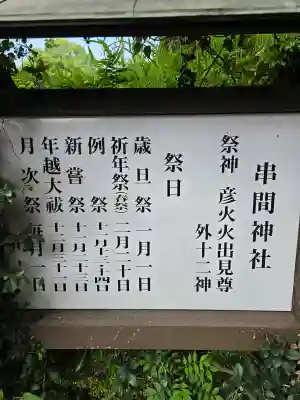 串間神社
祭神 彦火火出見尊
外十二神
祭日
歳旦祭 一月一日
祈年祭(春祭) 二月二十日
例祭 十一月十三・十四日
新嘗祭 十一月二十三日
年越大祓 十二月三十一日
月次祭 毎月一日